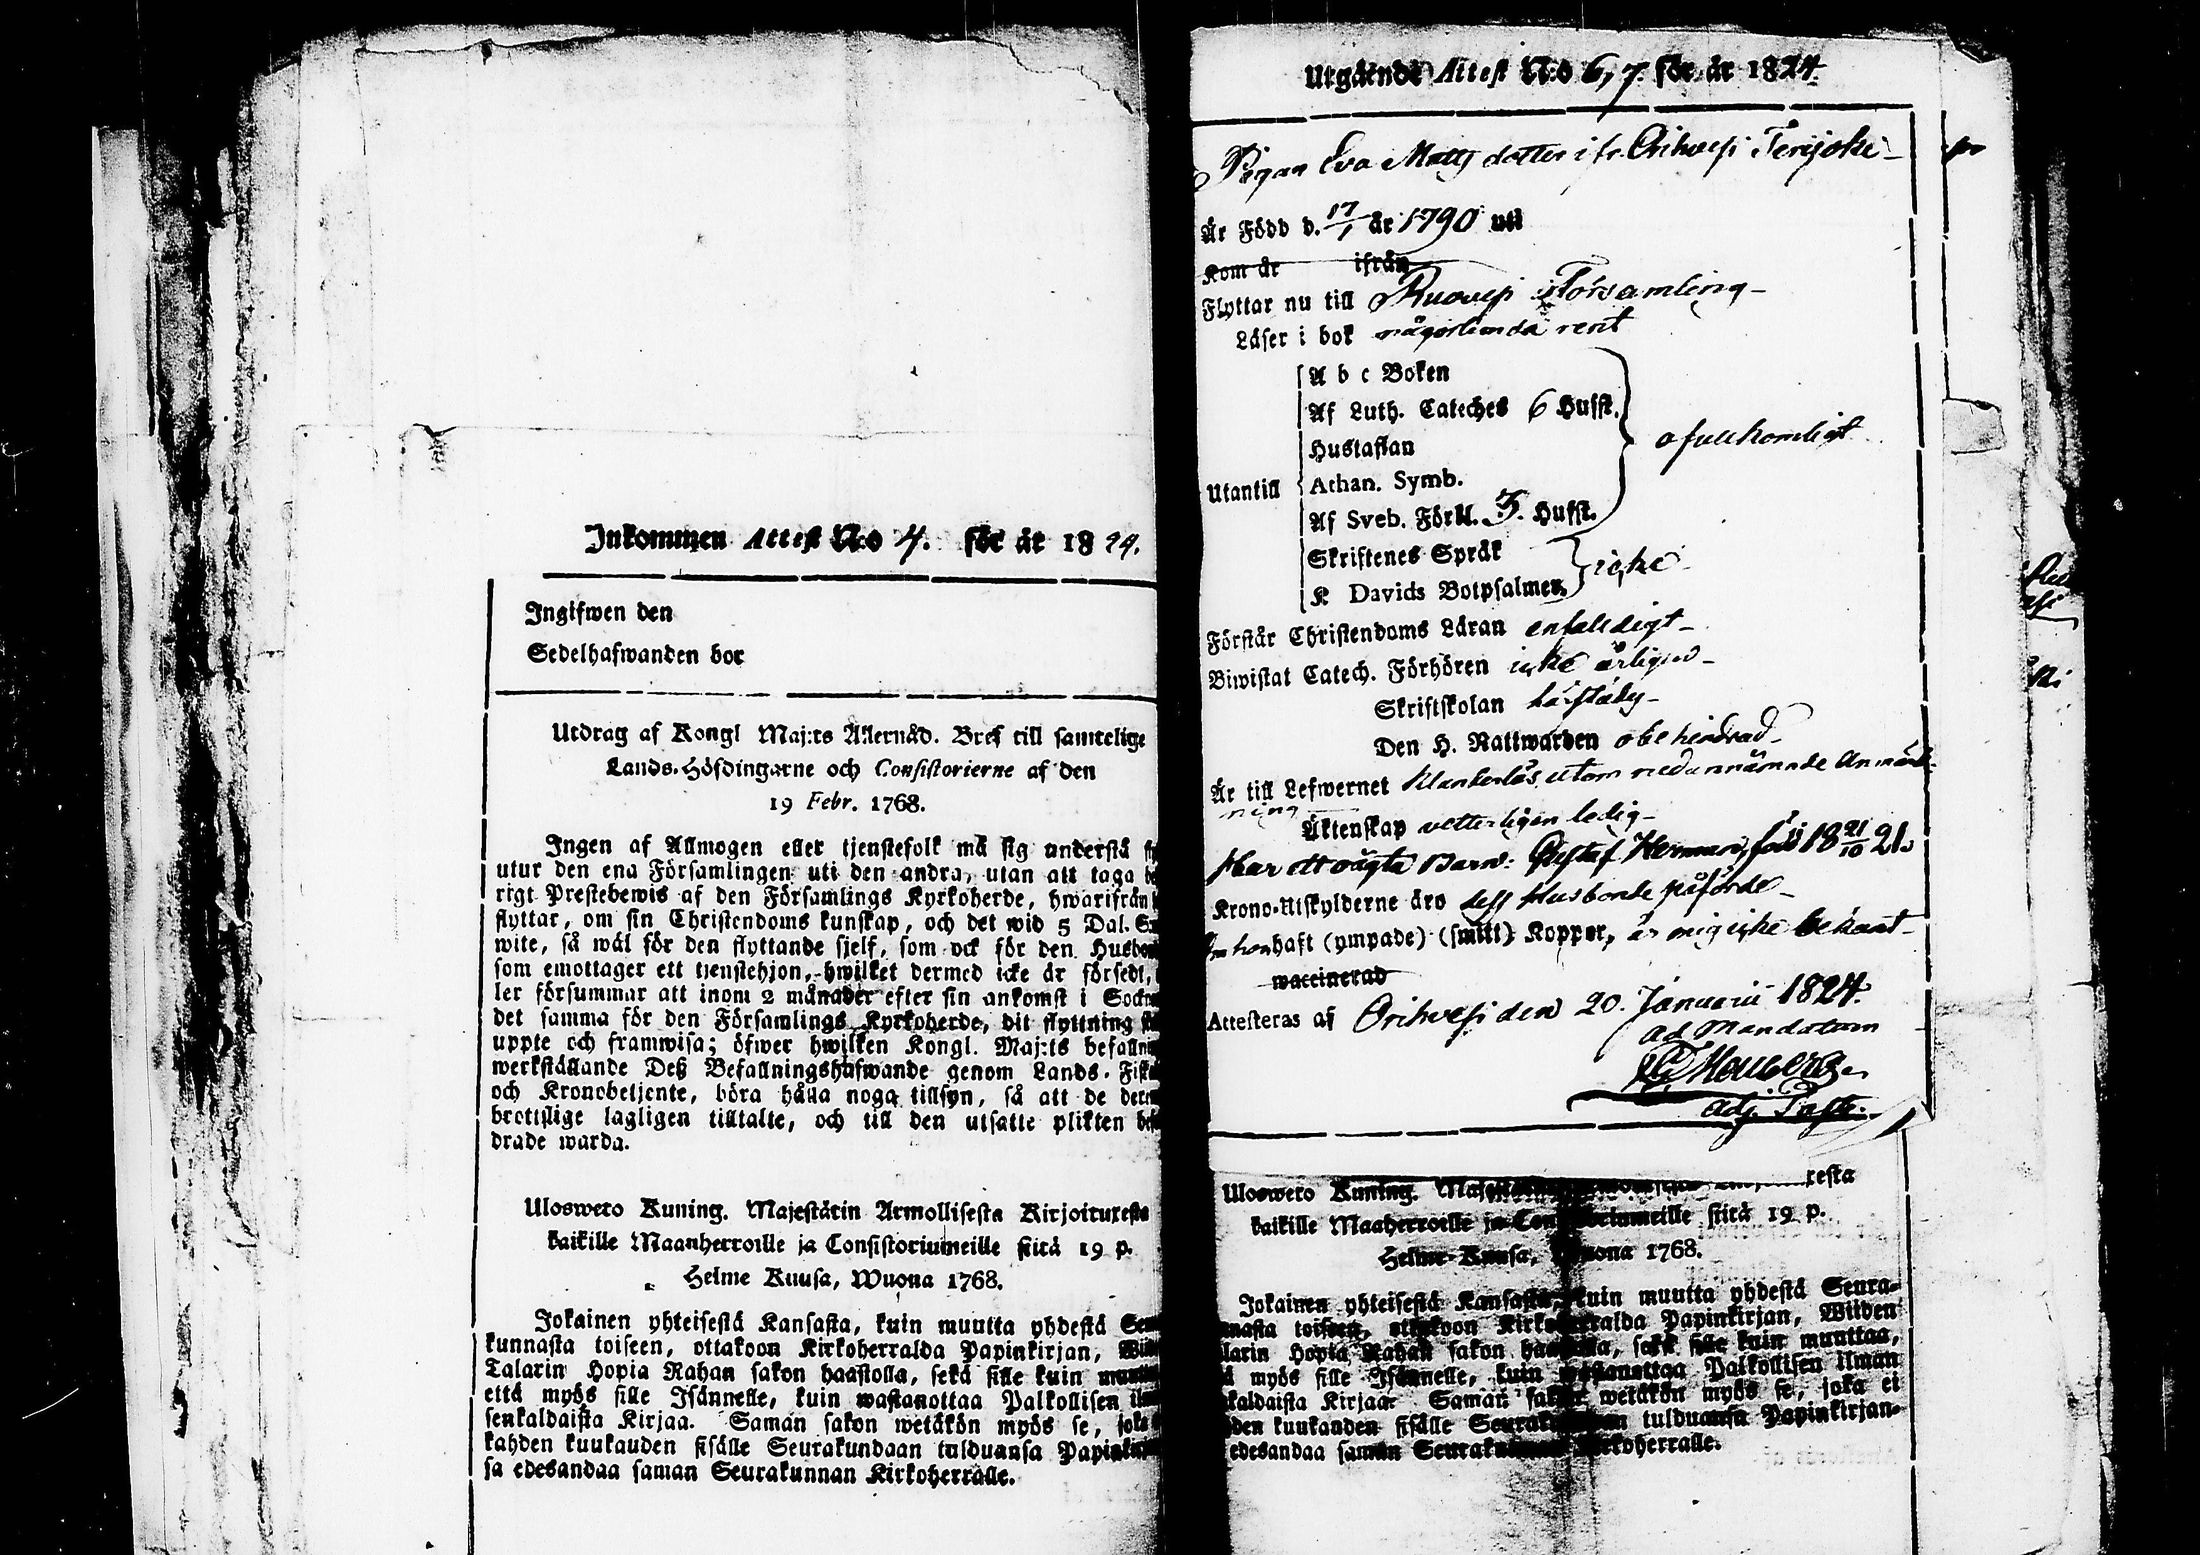 Inkommen Attest N:o 4. för år 1824.
Ingifwen den
Sedelhafwanden bor
Utdrag af Kongl Maj:ts Allernåd. Bref till samtelige
Lands-Höfdingarne och Consistorierne af den
19 Febr. 1768.
Ingen af Allmogen eller tjenstefolk må sig understå
utur den ena Församlingen uti den andra, utan att taga
rigt Prestebewis af den Församlings Kyrkoherde, hwarifrån
flyttar, om sin Christendoms kunskap, och det wid 5 Dal.
wite, så wäl för den flyttande sjelf, som ock för den
som emottager ett tjenstehjon, hwilket dermed icke är försedt,
ler försummar att inom 2 månader efter sin ankomst i
det samma för den Församlings Kyrkoherde, dit flyttning
uppte och framwisa; öfwer hwilken Kongl. Maj:ts
werkställande Deß Befallningshafwande genom Lands-
och Kronobetjente, böra hålla noga tillsyn, så att de
brottslige lagligen tilltalte, och till den utsatte plikten
drade warda.
Ulosweto Kuning. Majestätin Armollisesta Kirjoituxesta
kaikille Maanherroille ja Consistoriumeille siitä 19 p.
Helme Kuusa, Wuona 1768.
Jokainen yhteisestä Kansasta, kuin muutta yhdestä
kunnasta toiseen, ottakoon Kirkoherralda Papinkirjan,
Talarin Hopia Rahan sakon haastolla, sekä sille kuin
että myös sille Isännelle, kuin wastanottaa Palkollisen
senkaldaista Kirjaa. Saman sakon wetäkön myös se,
kahden kuukauden sisälle Seurakundaan tulduansa
sa edesandaa saman Seurakunnan Kirkoherralle.
Utgående Attest N:o 6,7. för år 1824.
Pigan Eva Matts dotter ifr. Orihvesi Terijoki
Är Född d. 17/1 år 1790 uti
Kom år ifrån
Flyttar nu till Ruovesi Församling
Läser i bok någorlunda rent
A b c Boken
Af Luth. Cateches 6 Hufst.
Hustaflan
ofullkomligt
Utantill
Athan. Symb.
Af Sveb. Förkl. 3. Hufst.
Skriftenes Språk
icke
K Davids Botpsalmer
Förstår Christendoms Läran enfaldigt
Biwistat Catech. Förhören icke årligen
Skriftskolan
Den H. Nattwarden obehindrad
Är till Lefwernet klanderlös utom nedannämnde Anmärk-
ning
Äktenskap vetterligen ledig
Har ett oägta Barn: Gustaf Herman, född 18 21/10 21.
Krono-Utskylderne äro dess Husbonde påförde
Om hon haft (ympade) (smitt) Koppor, är mig icke bekant
waccinerad
Attesteras af Orihvesi den 20. Januarii 1824.
ad Mandatum
Adj. Past.
Ulosweto Kuning. resta
kaikille Maaherroille ja siitä 19 p.
Helme-Kuusa, 1768.
Jokainen yhteisestä Kansasta, kuin muutta yhdestä Seura-
toiseen, ottakoon Papinkirjan, Wiiden
Hopia Rahan sakon sekä sille kuin muuttaa,
myös sille Isännelle, kuin wastanottaa Palkollisen ilman
Kirjaa. Saman wetäkön myös se, joka ei
kuukauden sisälle tulduansa Papinkirjan-
edesandaa saman Kirkoherralle.